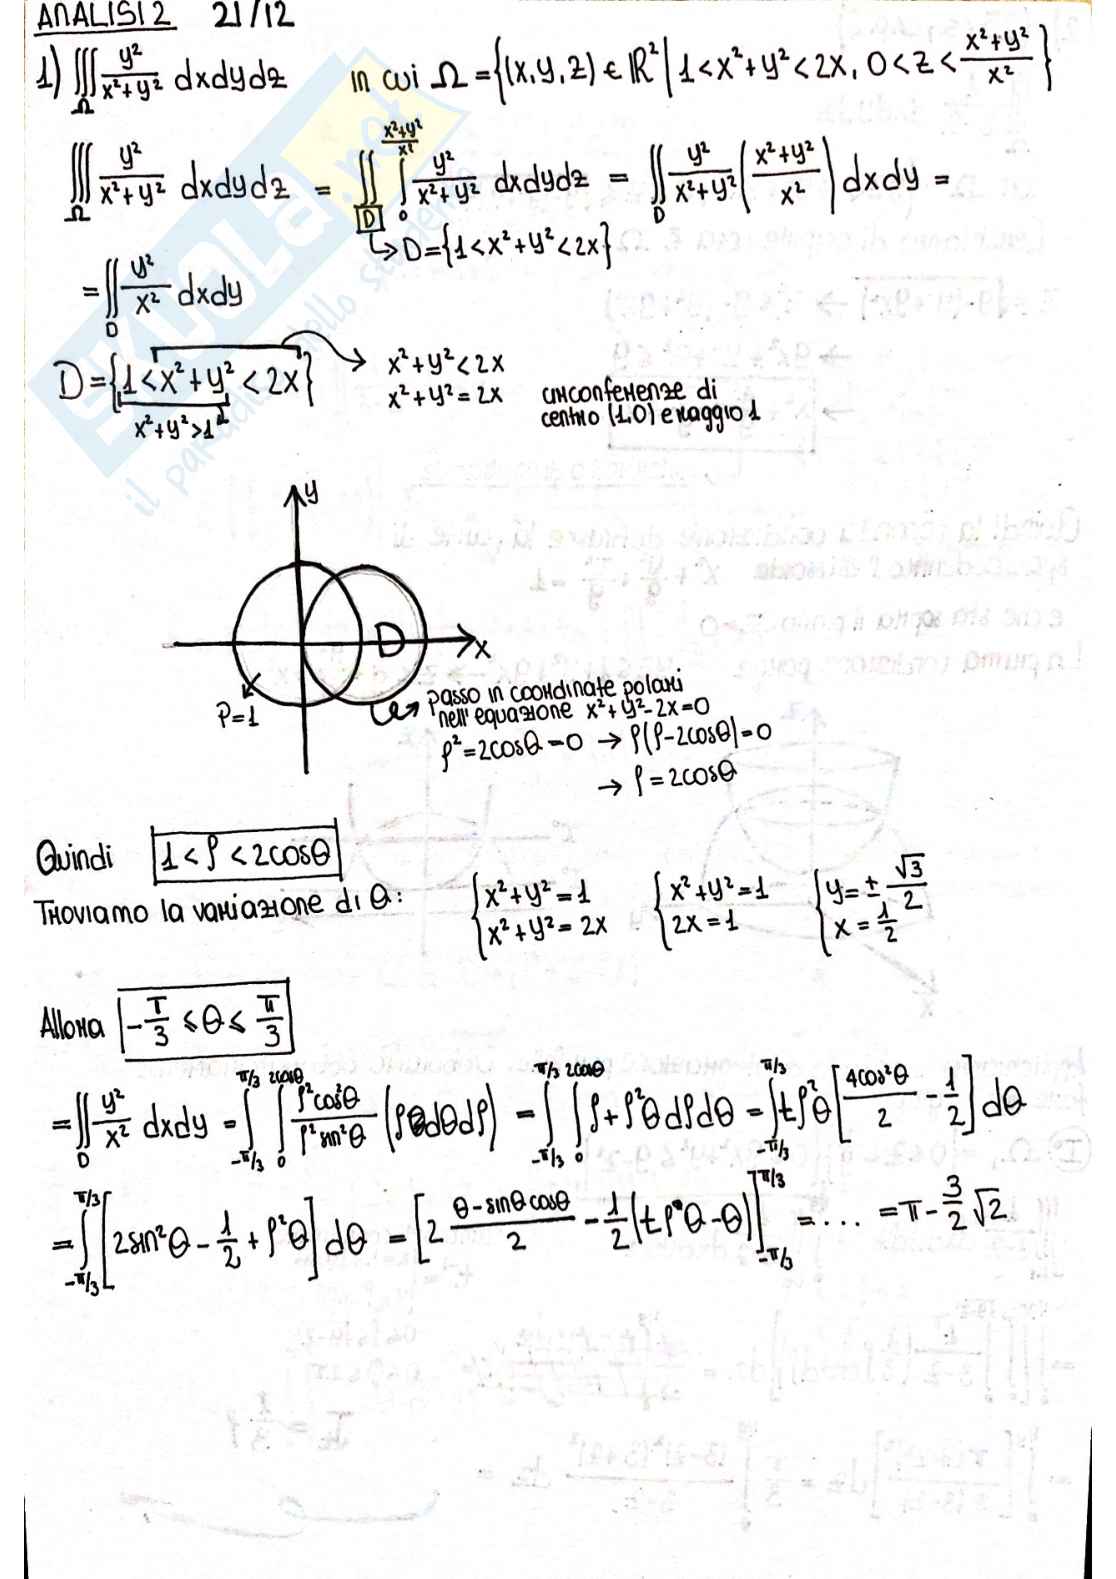 ANALISI 2 21/12
1) ∭_Ω y²/(x²+y²) dxdydz in cui Ω = {(x,y,z) ∈ ℝ² | 1<x²+y²<2x, 0<z<(x²+y²)/x²}
∭_Ω y²/(x²+y²) dxdydz = ∬_D ∫_0^((x²+y²)/x²) y²/(x²+y²) dxdydz = ∬_D y²/(x²+y²) ((x²+y²)/x²) dxdy =
↳ D={1<x²+y²<2x}
= ∬_D y²/x² dxdy
D={1<x²+y²<2x} → x²+y²<2x
x²+y²=2x circonferenze di
centro (1,0) e raggio 1
x²+y²>1
y
D
x
ρ=1
passo in coordinate polari
nell'equazione x²+y²-2x=0
ρ²=2cosθ=0 → ρ(ρ-2cosθ)=0
→ ρ=2cosθ
Quindi 1<ρ<2cosθ
Troviamo la variazione di θ: { x²+y²=1 { x²+y²=1 { y=±√3/2
x²+y²=2x 2x=1 x=1/2
Allora -π/3 ≤θ≤ π/3
= ∬_D y²/x² dxdy = ∫_(-π/3)^(π/3) ∫_0^(2cosθ) ρ²cos²θ/ρ²sin²θ (ρdθdρ) = ∫_(-π/3)^(π/3) ∫_0^(2cosθ) ρ+ρ²θ dρdθ = ∫_(-π/3)^(π/3) tρ²θ [4cos²θ/2 - 1/2] dθ
= ∫_(-π/3)^(π/3) [2sin²θ - 1/2 + ρ²θ] dθ = [2 (θ-sinθcosθ)/2 - 1/2 (tρθ-θ)]_(-π/3)^(π/3) = ... = π - 3/2 √2
SKUOLA.net
il paradiso dello studente